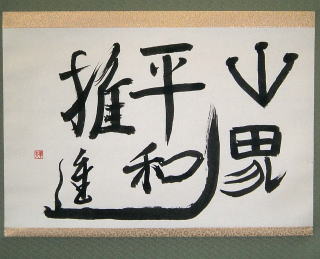 世界
平和
推進